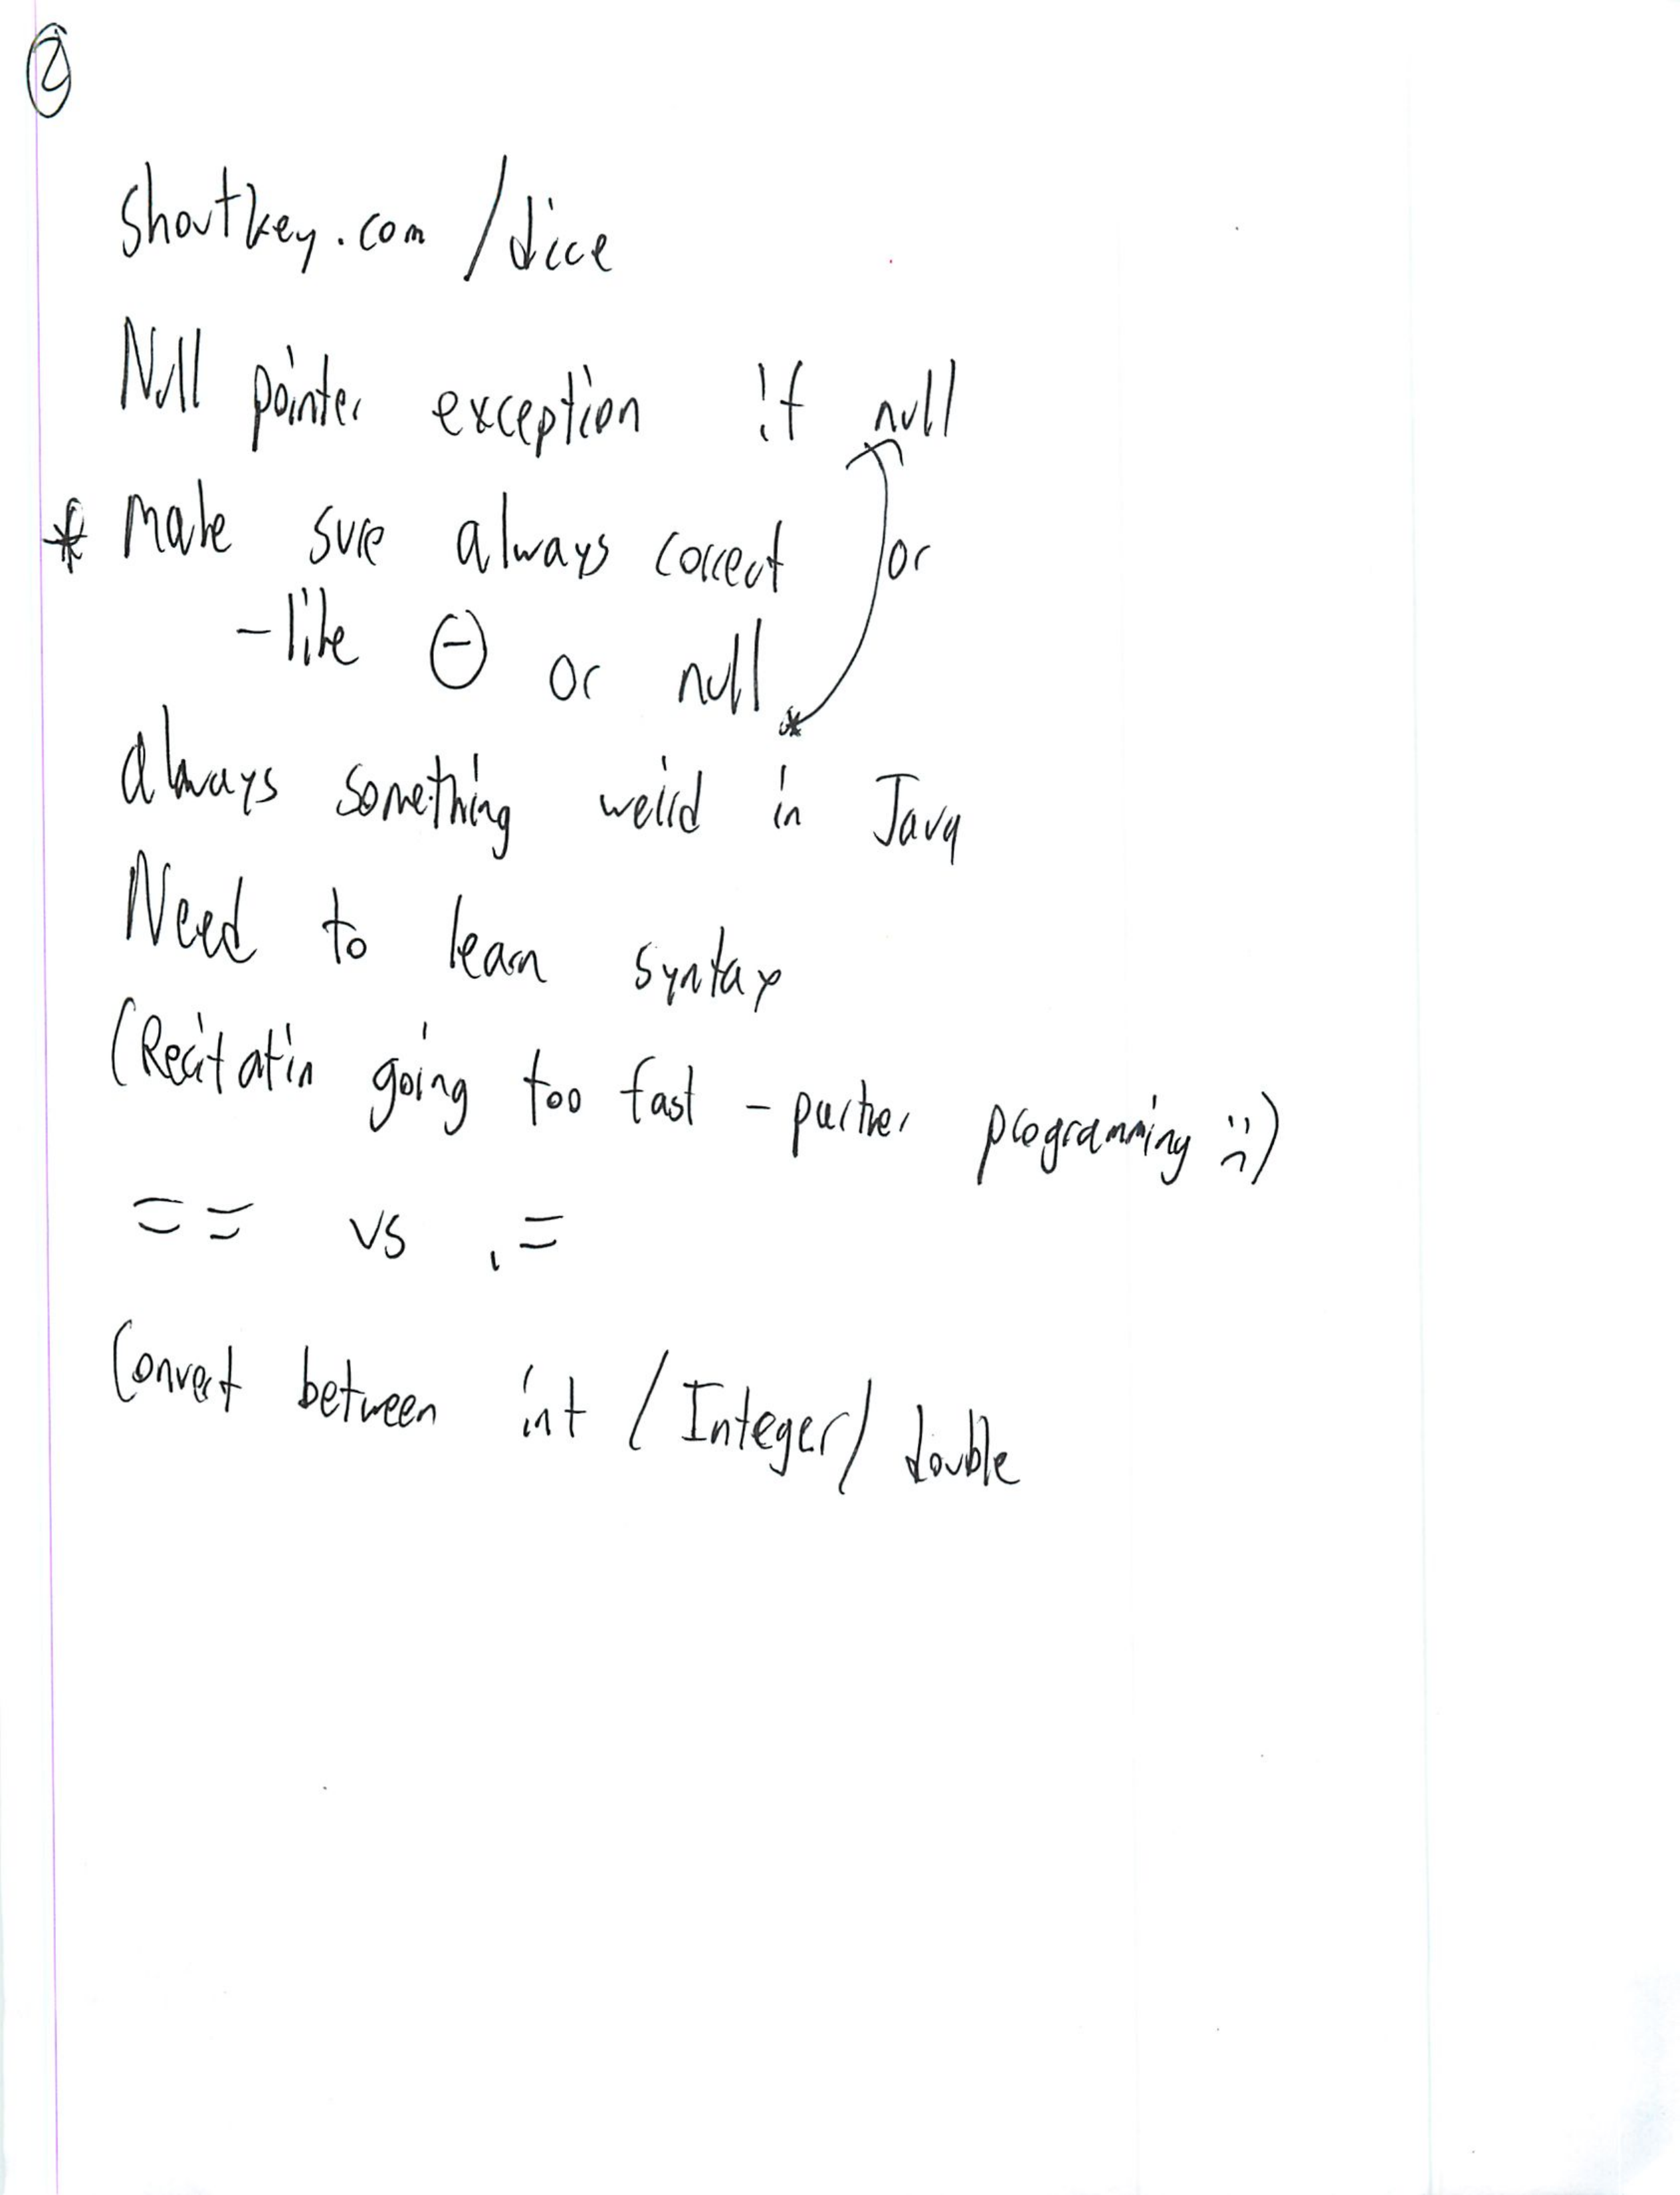 ②
shoutkey.com /dice
Null pointer exception if null
* Make sure always correct or
- like ⊖ or null
always something weird in Java
Need to learn syntax
(Recitatin going too fast - partner programming :()
== vs .=
Convert between int / Integer / double